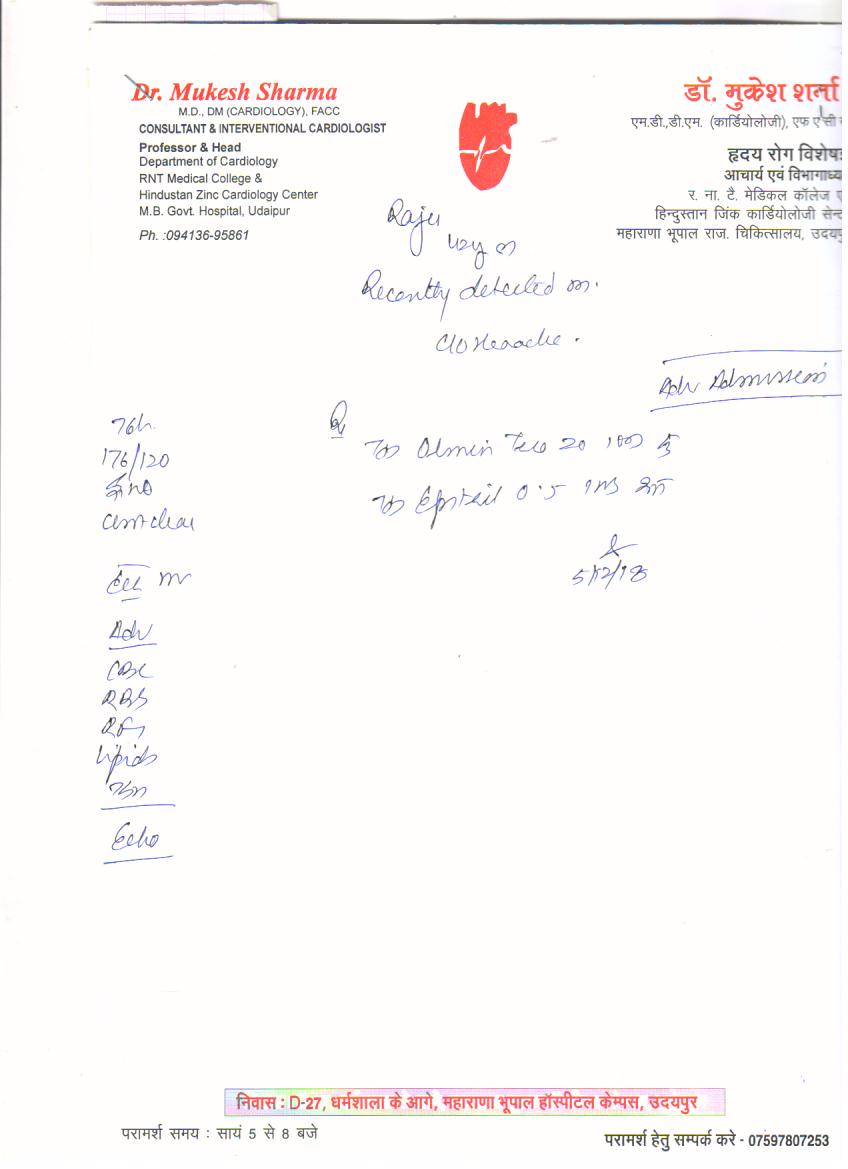 Dr. Mukesh Sharma
M.D., DM (CARDIOLOGY), FACC
CONSULTANT & INTERVENTIONAL CARDIOLOGIST
Professor & Head
Department of Cardiology
RNT Medical College &
Hindustan Zinc Cardiology Center
M.B. Govt. Hospital, Udaipur
Ph. :094136-95861
डॉ. मुकेश शर्मा
एम.डी.,डी.एम. (कार्डियोलोजी), एफ ए सी
हृदय रोग विशेष
आचार्य एवं विभागाध्य
र. ना. टै. मेडिकल कॉलेज ए
हिन्दुस्तान जिंक कार्डियोलोजी सेन्ट
महाराणा भूपाल राज. चिकित्सालय, उदयपु
Raju
Recently detected
C/O Headache.
Adv Admission
76/.
176/120
chest clear
Adv
CBC
RBS
RFT
Lipids
Echo
Olmin Trio 20
0.5
5/12/18
निवास : D-27, धर्मशाला के आगे, महाराणा भूपाल हॉस्पीटल केम्पस, उदयपुर
परामर्श समय : सायं 5 से 8 बजे
परामर्श हेतु सम्पर्क करे - 07597807253